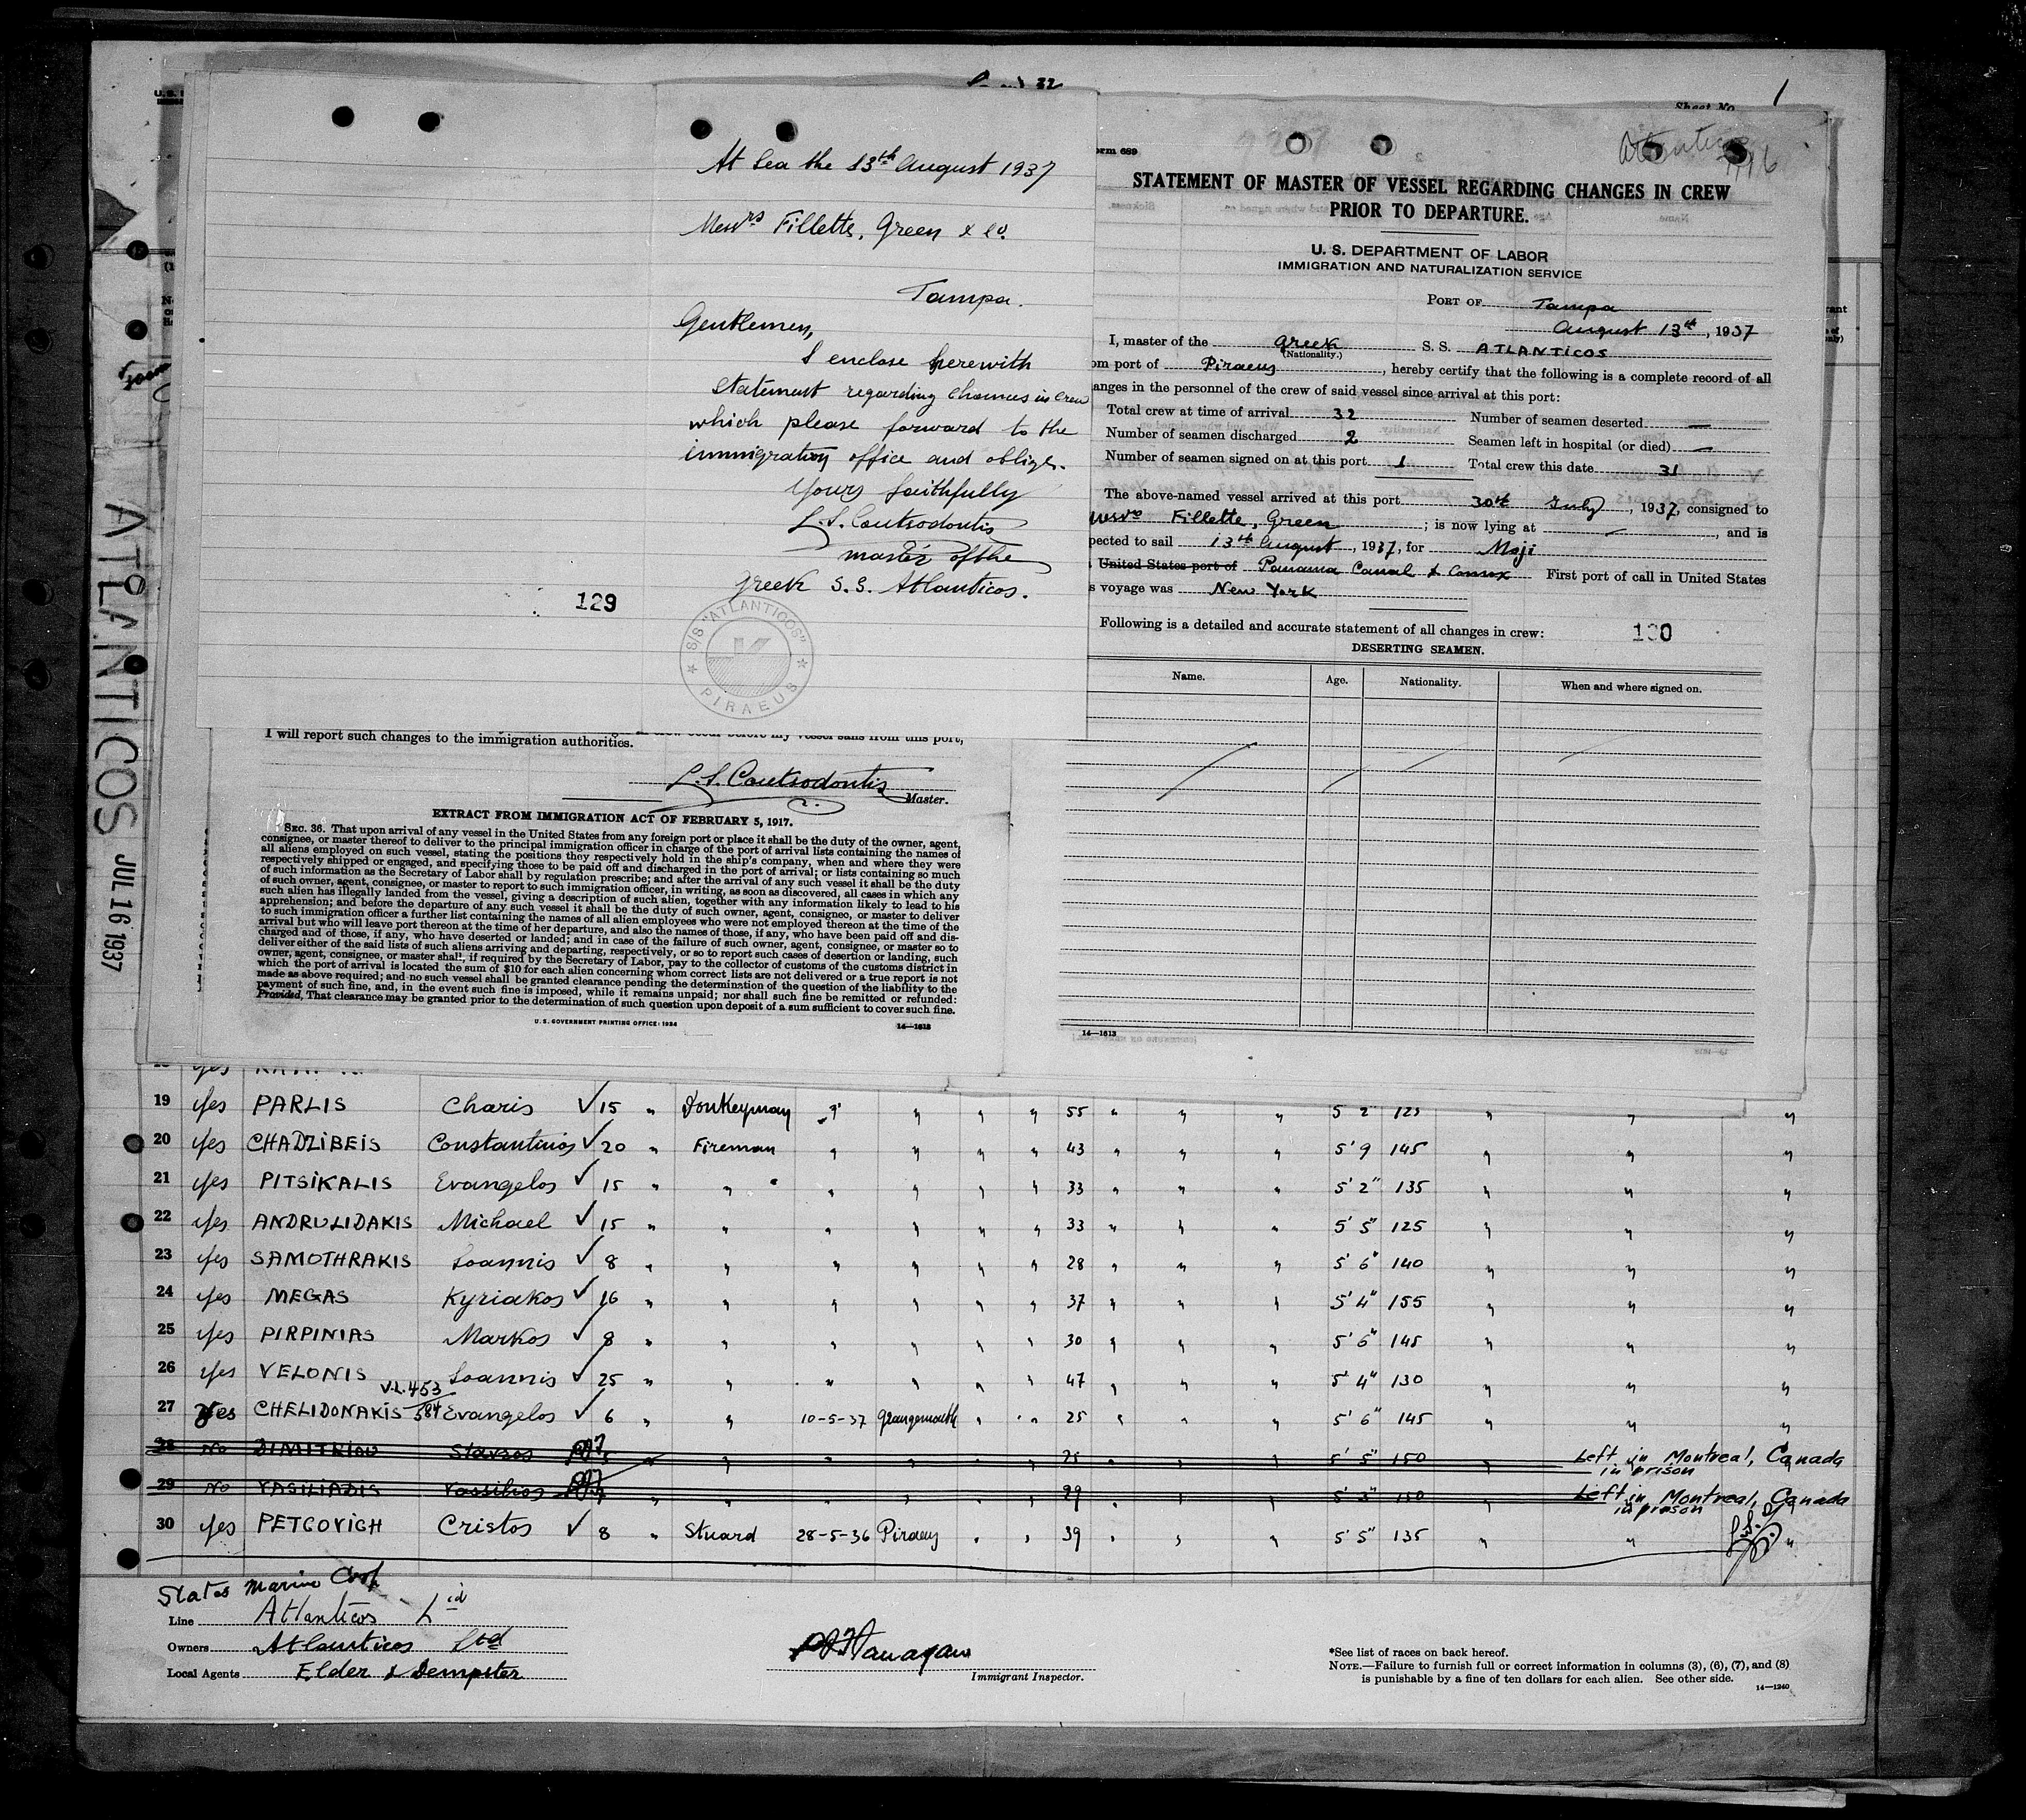 At Sea the 13th August 1937
Messrs Fillette, Green & Co.
Tampa.
Gentlemen,
I enclose herewith
statement regarding changes in crew
which please forward to the
immigration office and oblige.
Yours faithfully
L.S. Coutsodontis
master of the
Greek S.S. Atlanticos.
129
S/S "ATLANTICOS"
JK
PIRAEUS
Sheet No. 1
Form 689
Atlanticos
STATEMENT OF MASTER OF VESSEL REGARDING CHANGES IN CREW
PRIOR TO DEPARTURE.
U. S. DEPARTMENT OF LABOR
IMMIGRATION AND NATURALIZATION SERVICE
PORT OF Tampa
August 13th, 1937
I, master of the Greek S. S. ATLANTICOS
(Nationality.)
om port of Piraeus, hereby certify that the following is a complete record of all
anges in the personnel of the crew of said vessel since arrival at this port:
Total crew at time of arrival 32 Number of seamen deserted —
Number of seamen discharged 2 Seamen left in hospital (or died) —
Number of seamen signed on at this port 1 Total crew this date 31
The above-named vessel arrived at this port 30th July, 1937, consigned to
Messrs Fillette, Green; is now lying at —, and is
pected to sail 13th August, 1937, for Moji
United States port of Panama Canal & First port of call in United States
s voyage was New York
Following is a detailed and accurate statement of all changes in crew: 130
DESERTING SEAMEN.
Name. Age. Nationality. When and where signed on.
14—1613
I will report such changes to the immigration authorities.
L.S. Coutsodontis
Master.
EXTRACT FROM IMMIGRATION ACT OF FEBRUARY 5, 1917.
SEC. 36. That upon arrival of any vessel in the United States from any foreign port or place it shall be the duty of the owner, agent,
consignee, or master thereof to deliver to the principal immigration officer in charge of the port of arrival lists containing the names of
all aliens employed on such vessel, stating the positions they respectively hold in the ship's company, when and where they were
respectively shipped or engaged, and specifying those to be paid off and discharged in the port of arrival; or lists containing so much
of such information as the Secretary of Labor shall by regulation prescribe; and after the arrival of any such vessel it shall be the duty
of such owner, agent, consignee, or master to report to such immigration officer, in writing, as soon as discovered, all cases in which any
such alien has illegally landed from the vessel, giving a description of such alien, together with any information likely to lead to his
apprehension; and before the departure of any such vessel it shall be the duty of such owner, agent, consignee, or master to deliver
to such immigration officer a further list containing the names of all alien employees who were not employed thereon at the time of the
arrival but who will leave port thereon at the time of her departure, and also the names of those, if any, who have been paid off and dis-
charged and of those, if any, who have deserted or landed; and in case of the failure of such owner, agent, consignee, or master so to
deliver either of the said lists of such aliens arriving and departing, respectively, or so to report such cases of desertion or landing, such
owner, agent, consignee, or master shall, if required by the Secretary of Labor, pay to the collector of customs of the customs district in
which the port of arrival is located the sum of $10 for each alien concerning whom correct lists are not delivered or a true report is not
made as above required; and no such vessel shall be granted clearance pending the determination of the question of the liability to the
payment of such fine, and, in the event such fine is imposed, while it remains unpaid; nor shall such fine be remitted or refunded:
Provided, That clearance may be granted prior to the determination of such question upon deposit of a sum sufficient to cover such fine.
U. S. GOVERNMENT PRINTING OFFICE: 1934 14—1613
ATLANTICOS JUL 16 1937
19 yes PARLIS Charis ✓ 15 " Donkeyman " " " " 55 " " " 5 2" 125 " " "
20 yes CHADZIBEIS Constantinos ✓ 20 " Fireman " " " " 43 " " " 5'9 145 " " "
21 yes PITSIKALIS Evangelos ✓ 15 " " " " " " 33 " " " 5'2" 135 " " "
22 yes ANDRULIDAKIS Michael ✓ 15 " " " " " " 33 " " " 5'5" 125 " " "
23 yes SAMOTHRAKIS Ioannis ✓ 8 " " " " " " 28 " " " 5'6" 140 " " "
24 yes MEGAS Kyriakos ✓ 16 " " " " " " 37 " " " 5'4" 155 " " "
25 yes PIRPINIAS Markos ✓ 8 " " " " " " 30 " " " 5'6" 145 " " "
26 yes VELONIS Ioannis ✓ 25 " " " " " " 47 " " " 5'4" 130 " " "
V.L. 453
584
27 Yes CHELIDONAKIS Evangelos ✓ 6 " " 10-5-37 Grangemouth " " 25 " " " 5'6" 145 " " "
28 No DIMITRIOU Stavros 5 " " " " " " 25 " " " 5'5" 150 " Left in Montreal, Canada
in prison
29 No VASILIADIS Vassilios " " " " " " 29 " " " 5'3" 150 " Left in Montreal, Canada
in prison
30 yes PETCOVICH Cristos ✓ 8 " Stuard 28-5-36 Piraeus " " 39 " " " 5'5" 135 " " "
States Marine Corp
Line Atlanticos Ltd
Owners Atlanticos Ltd
Local Agents Elder & Dempster
Flanagan
Immigrant Inspector.
*See list of races on back hereof.
NOTE.—Failure to furnish full or correct information in columns (3), (6), (7), and (8)
is punishable by a fine of ten dollars for each alien. See other side.
14—1240